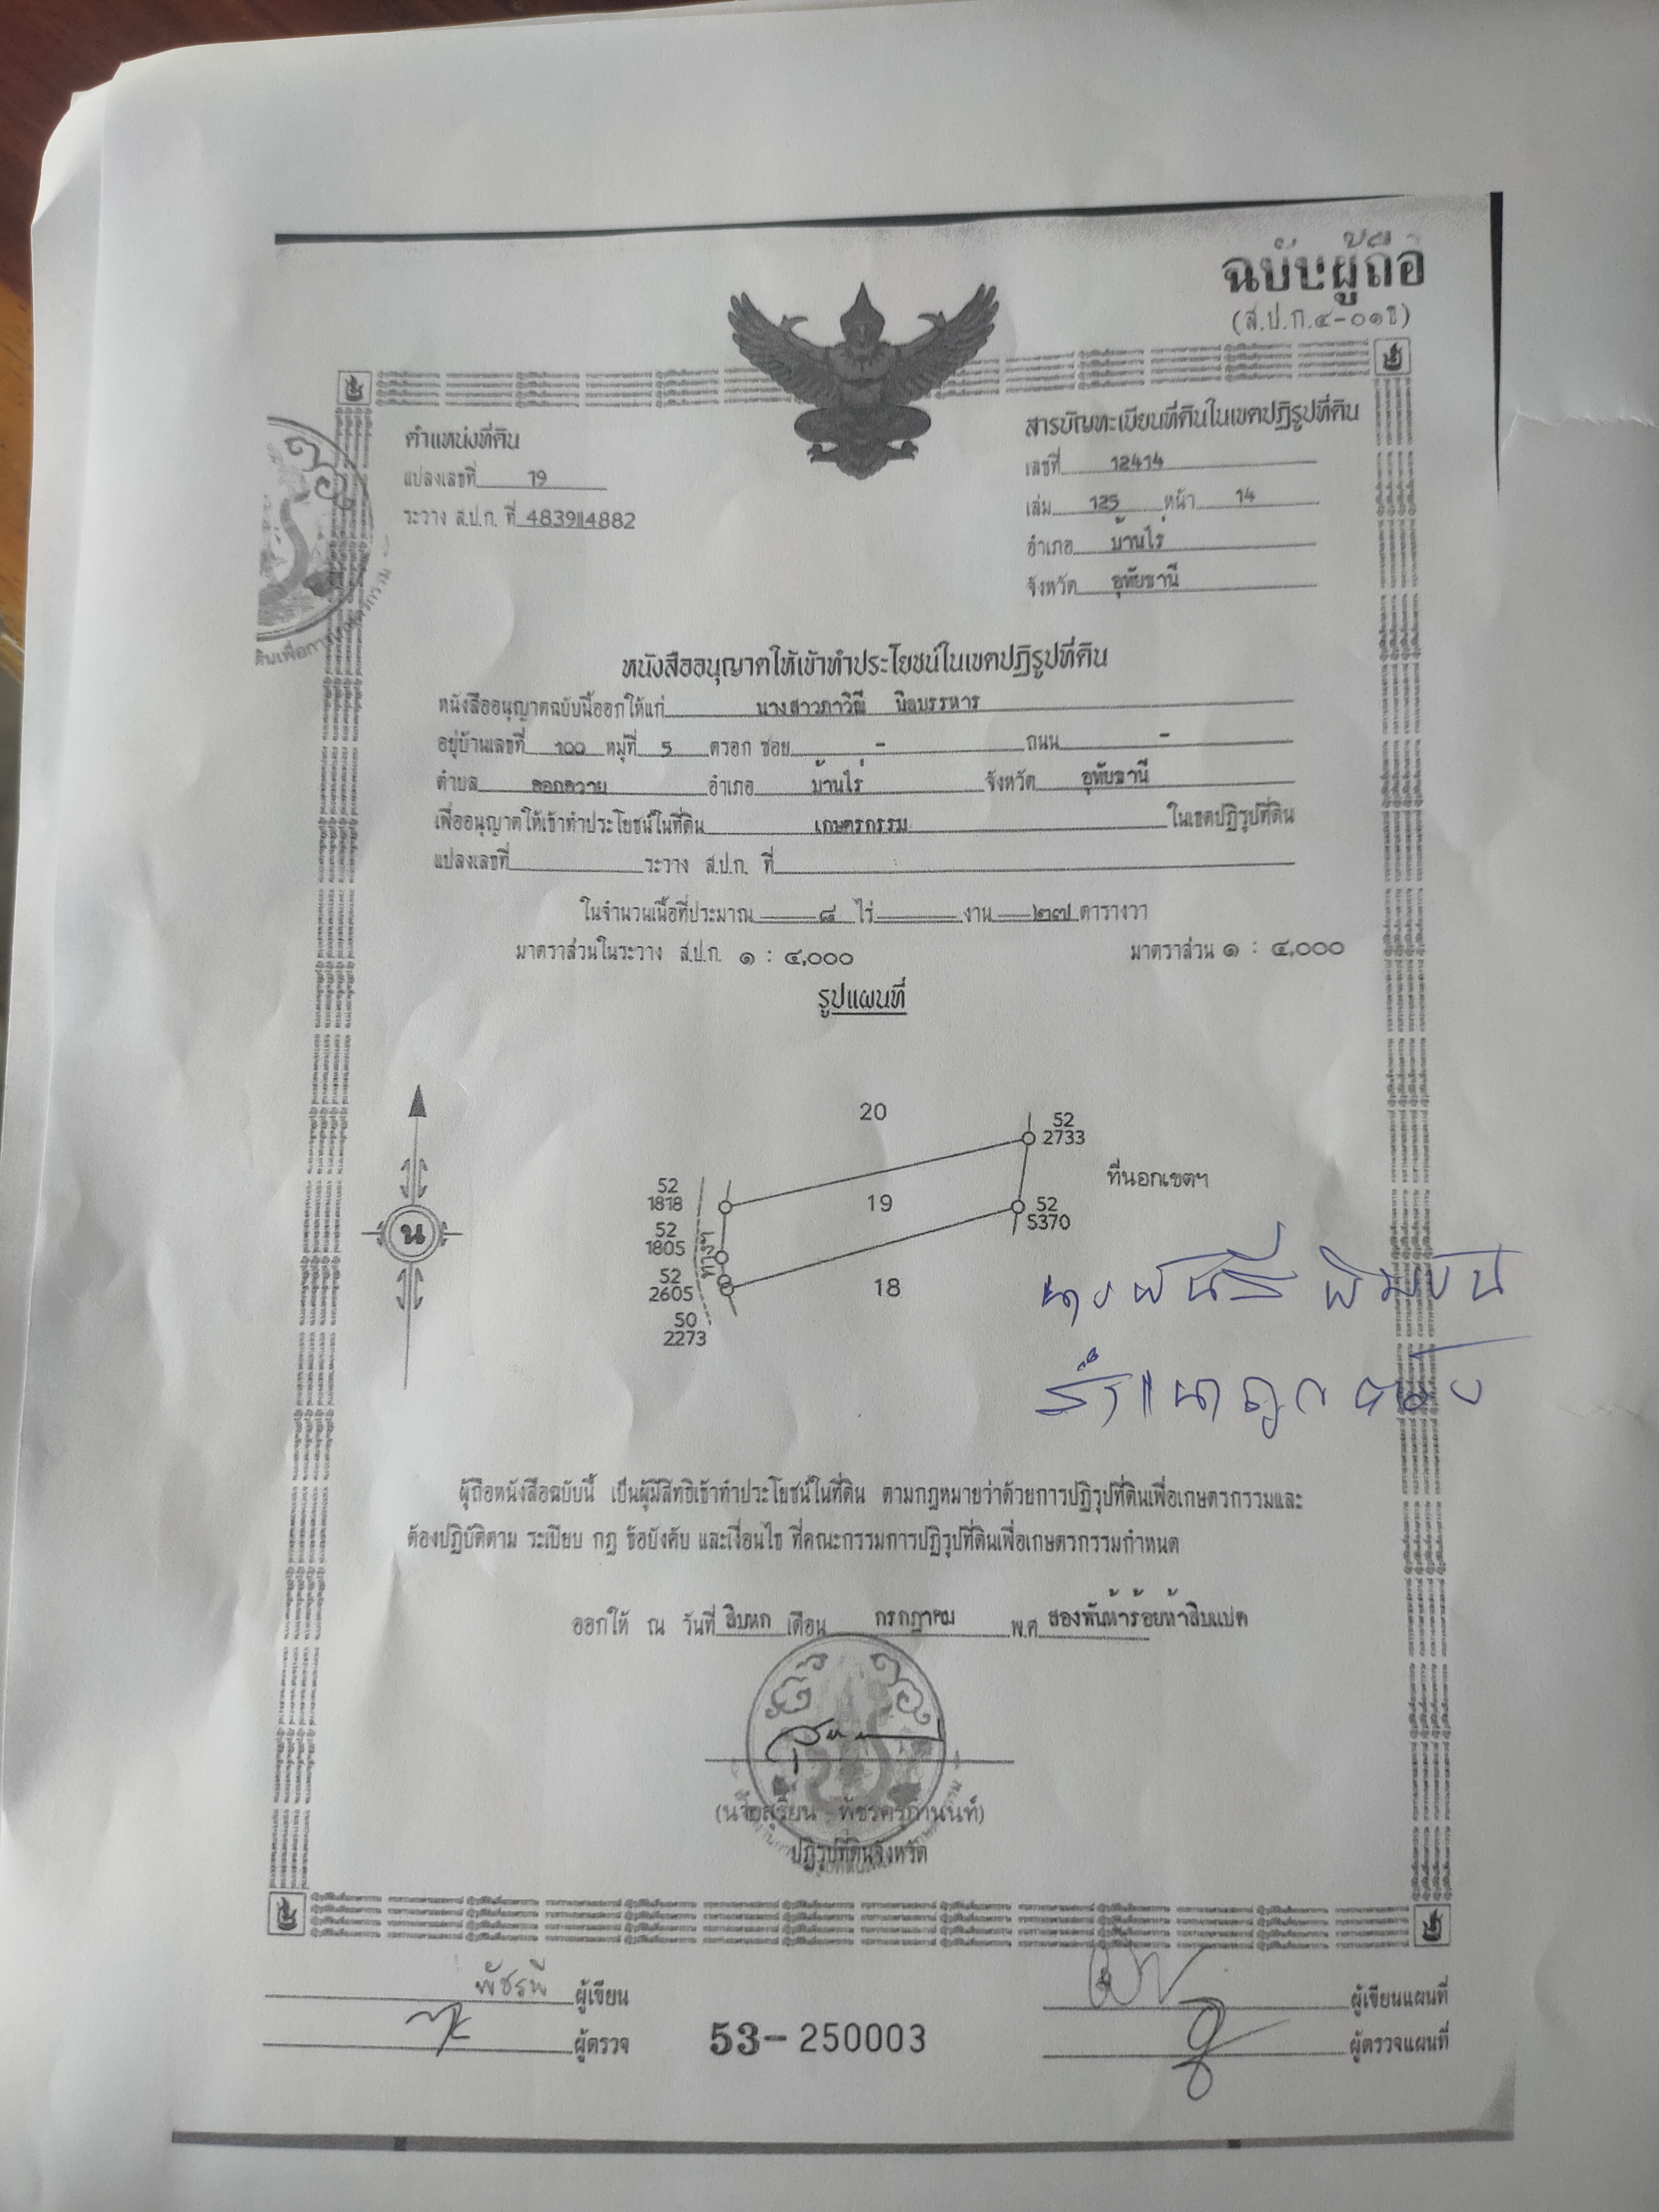 ฉบับผู้ถือ
(ส.ป.ก.๔-๐๑ข)
ตำแหน่งที่ดิน
แปลงเลขที่ 19
ระวาง ส.ป.ก. ที่ 4839II4882
สารบัญทะเบียนที่ดินในเขตปฏิรูปที่ดิน
เลขที่ 12414
เล่ม 125 หน้า 14
อำเภอ บ้านไร่
จังหวัด อุทัยธานี
หนังสืออนุญาตให้เข้าทำประโยชน์ในเขตปฏิรูปที่ดิน
หนังสืออนุญาตฉบับนี้ออกให้แก่ นางสาวภาวิณี นิลบรรหาร
อยู่บ้านเลขที่ 100 หมู่ที่ 5 ตรอก ซอย - ถนน -
ตำบล คอกควาย อำเภอ บ้านไร่ จังหวัด อุทัยธานี
เพื่ออนุญาตให้เข้าทำประโยชน์ในที่ดิน เกษตรกรรม ในเขตปฏิรูปที่ดิน
แปลงเลขที่ ระวาง ส.ป.ก. ที่
ในจำนวนเนื้อที่ประมาณ ๘ ไร่ - งาน ๒๗ ตารางวา
มาตราส่วนในระวาง ส.ป.ก. ๑ : ๔,๐๐๐ มาตราส่วน ๑ : ๔,๐๐๐
รูปแผนที่
20
52
2733
ที่นอกเขตฯ
52
1818
19
52
5370
52
1805
ทางฯ
52
2605
18
50
2273
น
สำเนาถูกต้อง
ผู้ถือหนังสือฉบับนี้ เป็นผู้มีสิทธิเข้าทำประโยชน์ในที่ดิน ตามกฎหมายว่าด้วยการปฏิรูปที่ดินเพื่อเกษตรกรรมและ
ต้องปฏิบัติตาม ระเบียบ กฎ ข้อบังคับ และเงื่อนไข ที่คณะกรรมการปฏิรูปที่ดินเพื่อเกษตรกรรมกำหนด
ออกให้ ณ วันที่ สิบหก เดือน กรกฎาคม พ.ศ. สองพันห้าร้อยห้าสิบแปด
ปฏิรูปที่ดินจังหวัด
พัชรพี ผู้เขียน
ผู้เขียนแผนที่
ผู้ตรวจ
53-250003
ผู้ตรวจแผนที่